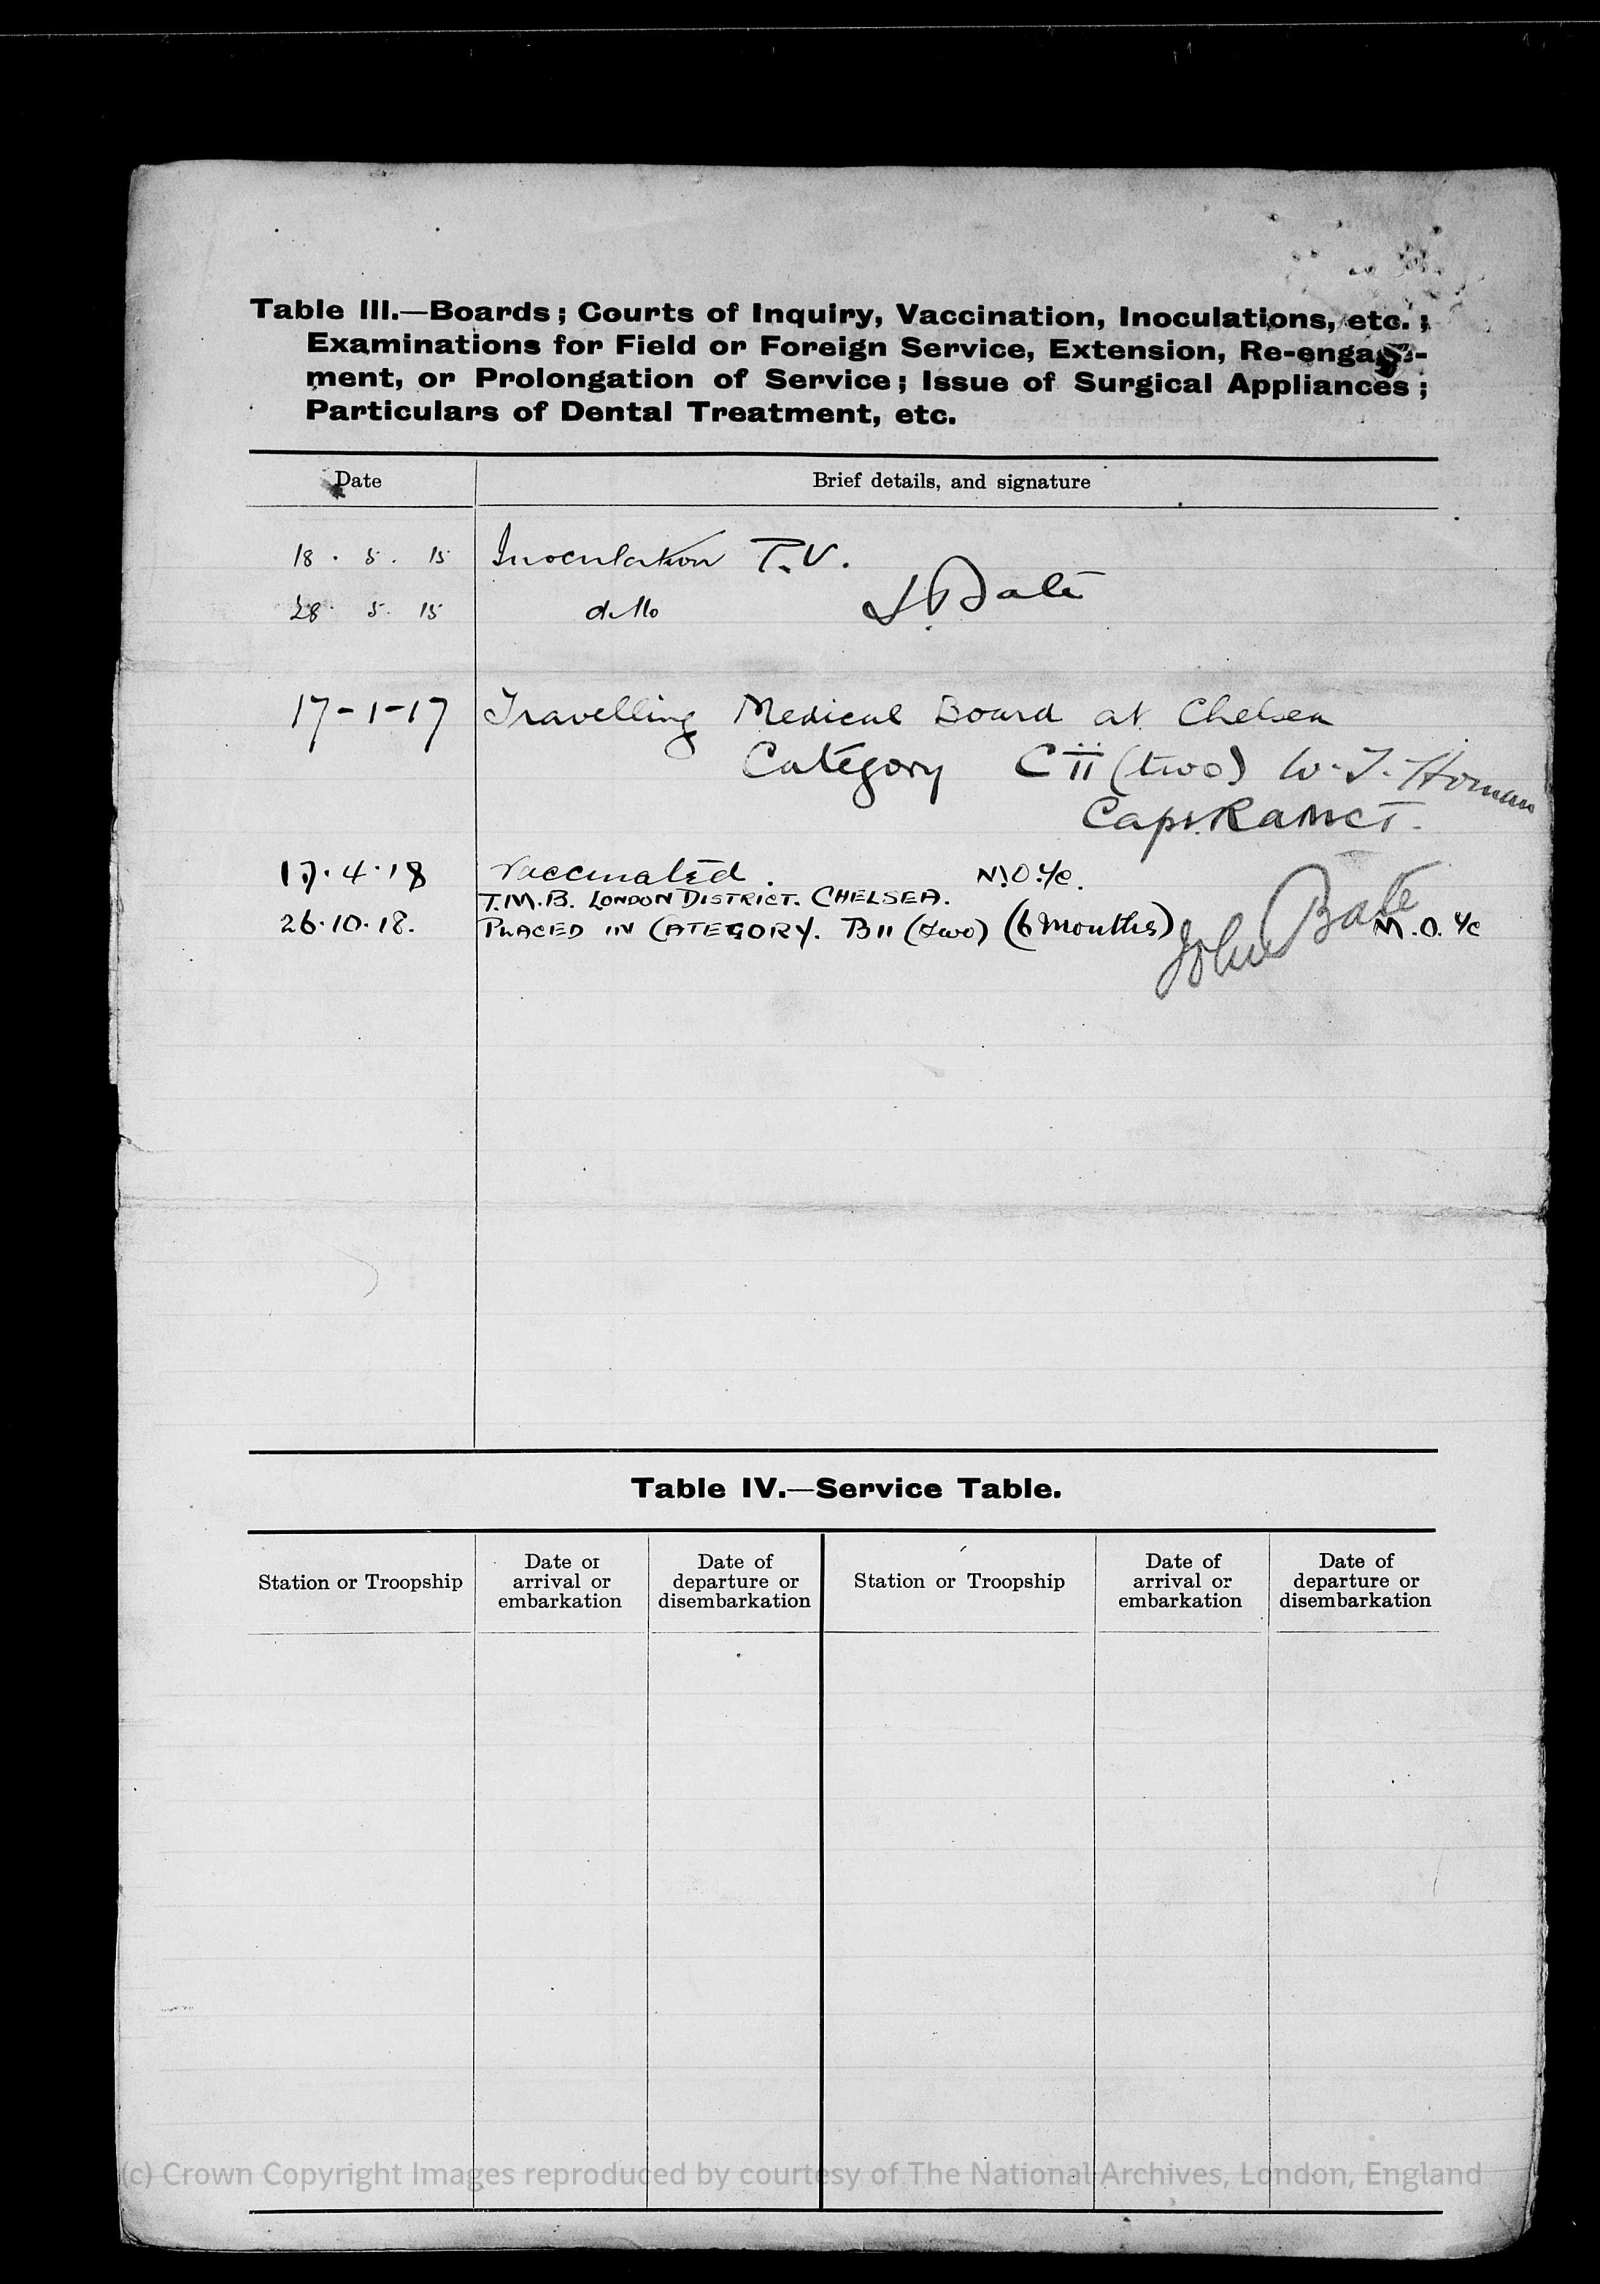 Table III.—Boards; Courts of Inquiry, Vaccination, Inoculations, etc.;
Examinations for Field or Foreign Service, Extension, Re-engage-
ment, or Prolongation of Service; Issue of Surgical Appliances;
Particulars of Dental Treatment, etc.
Date Brief details, and signature
18. 5. 15 Inoculation T.V.
28. 5. 15 ditto J. Bate
17-1-17 Travelling Medical Board at Chelsea
Category C ii (two) W. J. Homan
Capt. RAMCT.
17.4.18 Vaccinated. M.O. i/c.
T.M.B. LONDON DISTRICT. CHELSEA.
26.10.18. PLACED IN CATEGORY. B II (two) (6 Months) John Bate M.O. i/c
Table IV.—Service Table.
Station or Troopship Date of arrival or embarkation Date of departure or disembarkation Station or Troopship Date of arrival or embarkation Date of departure or disembarkation
(c) Crown Copyright Images reproduced by courtesy of The National Archives, London, England